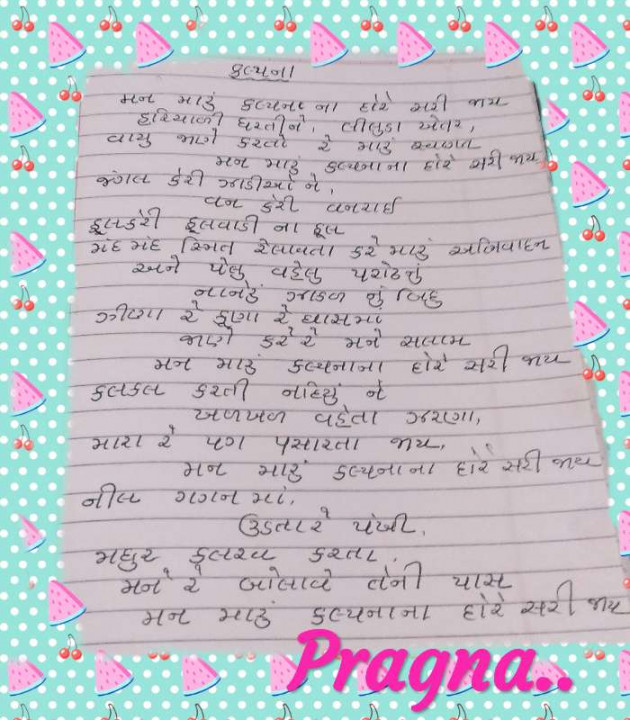 કલ્પના
મન મારું કલ્પના ના દોરે સરી જાય
હરિયાળી ધરતીને, લીલુડા ખેતર,
વાયુ જાણે કરતો રે મારું સ્વાગત
મન મારું કલ્પનાના દોરે સરી જાય
જંગલ કેરી ઝાડીઓ ને,
વન કેરી વનરાઈ
ફૂલકેરી ફૂલવાડી ના ફૂલ
મંદ મંદ સ્મિત રેલાવતા કરે મારું અભિવાદન
અને પેલુ વહેલુ પરોઢનું
નાનેરું ઝાકળ નું બિંદુ
ઝીણા રે કૂણા રે ઘાસમાં
જાણે કરે રે મને સલામ
મન મારું કલ્પનાના દોરે સરી જાય
કલકલ કરતી નદિયું ને
ખળખળ વહેતા ઝરણા,
મારા રે પગ પસારતા જાય,
મન મારું કલ્પનાના દોરે સરી જાય
નીલ ગગન માં,
ઉડતા રે પંખી,
મધુર કલરવ કરતા,
મને રે બોલાવે તેની પાસ
મન મારું કલ્પનાના દોરે સરી જાય
Pragna..